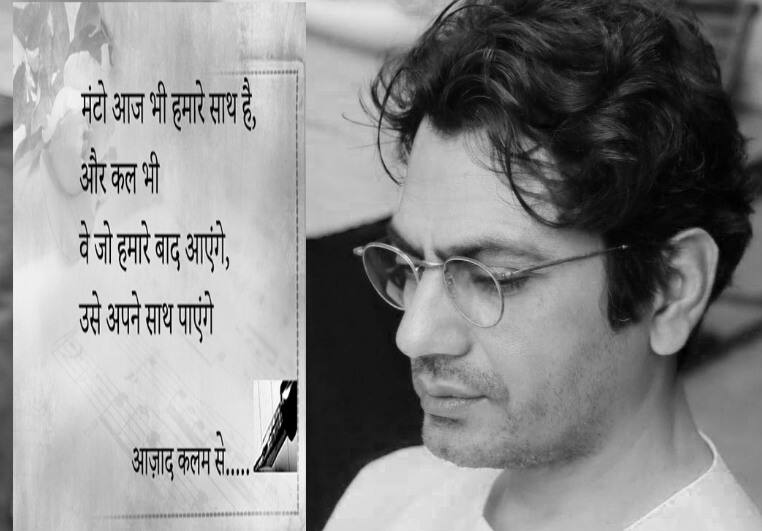 मंटो आज भी हमारे साथ है,
और कल भी
वे जो हमारे बाद आएंगे,
उसे अपने साथ पाएंगे
आज़ाद कलम से.....